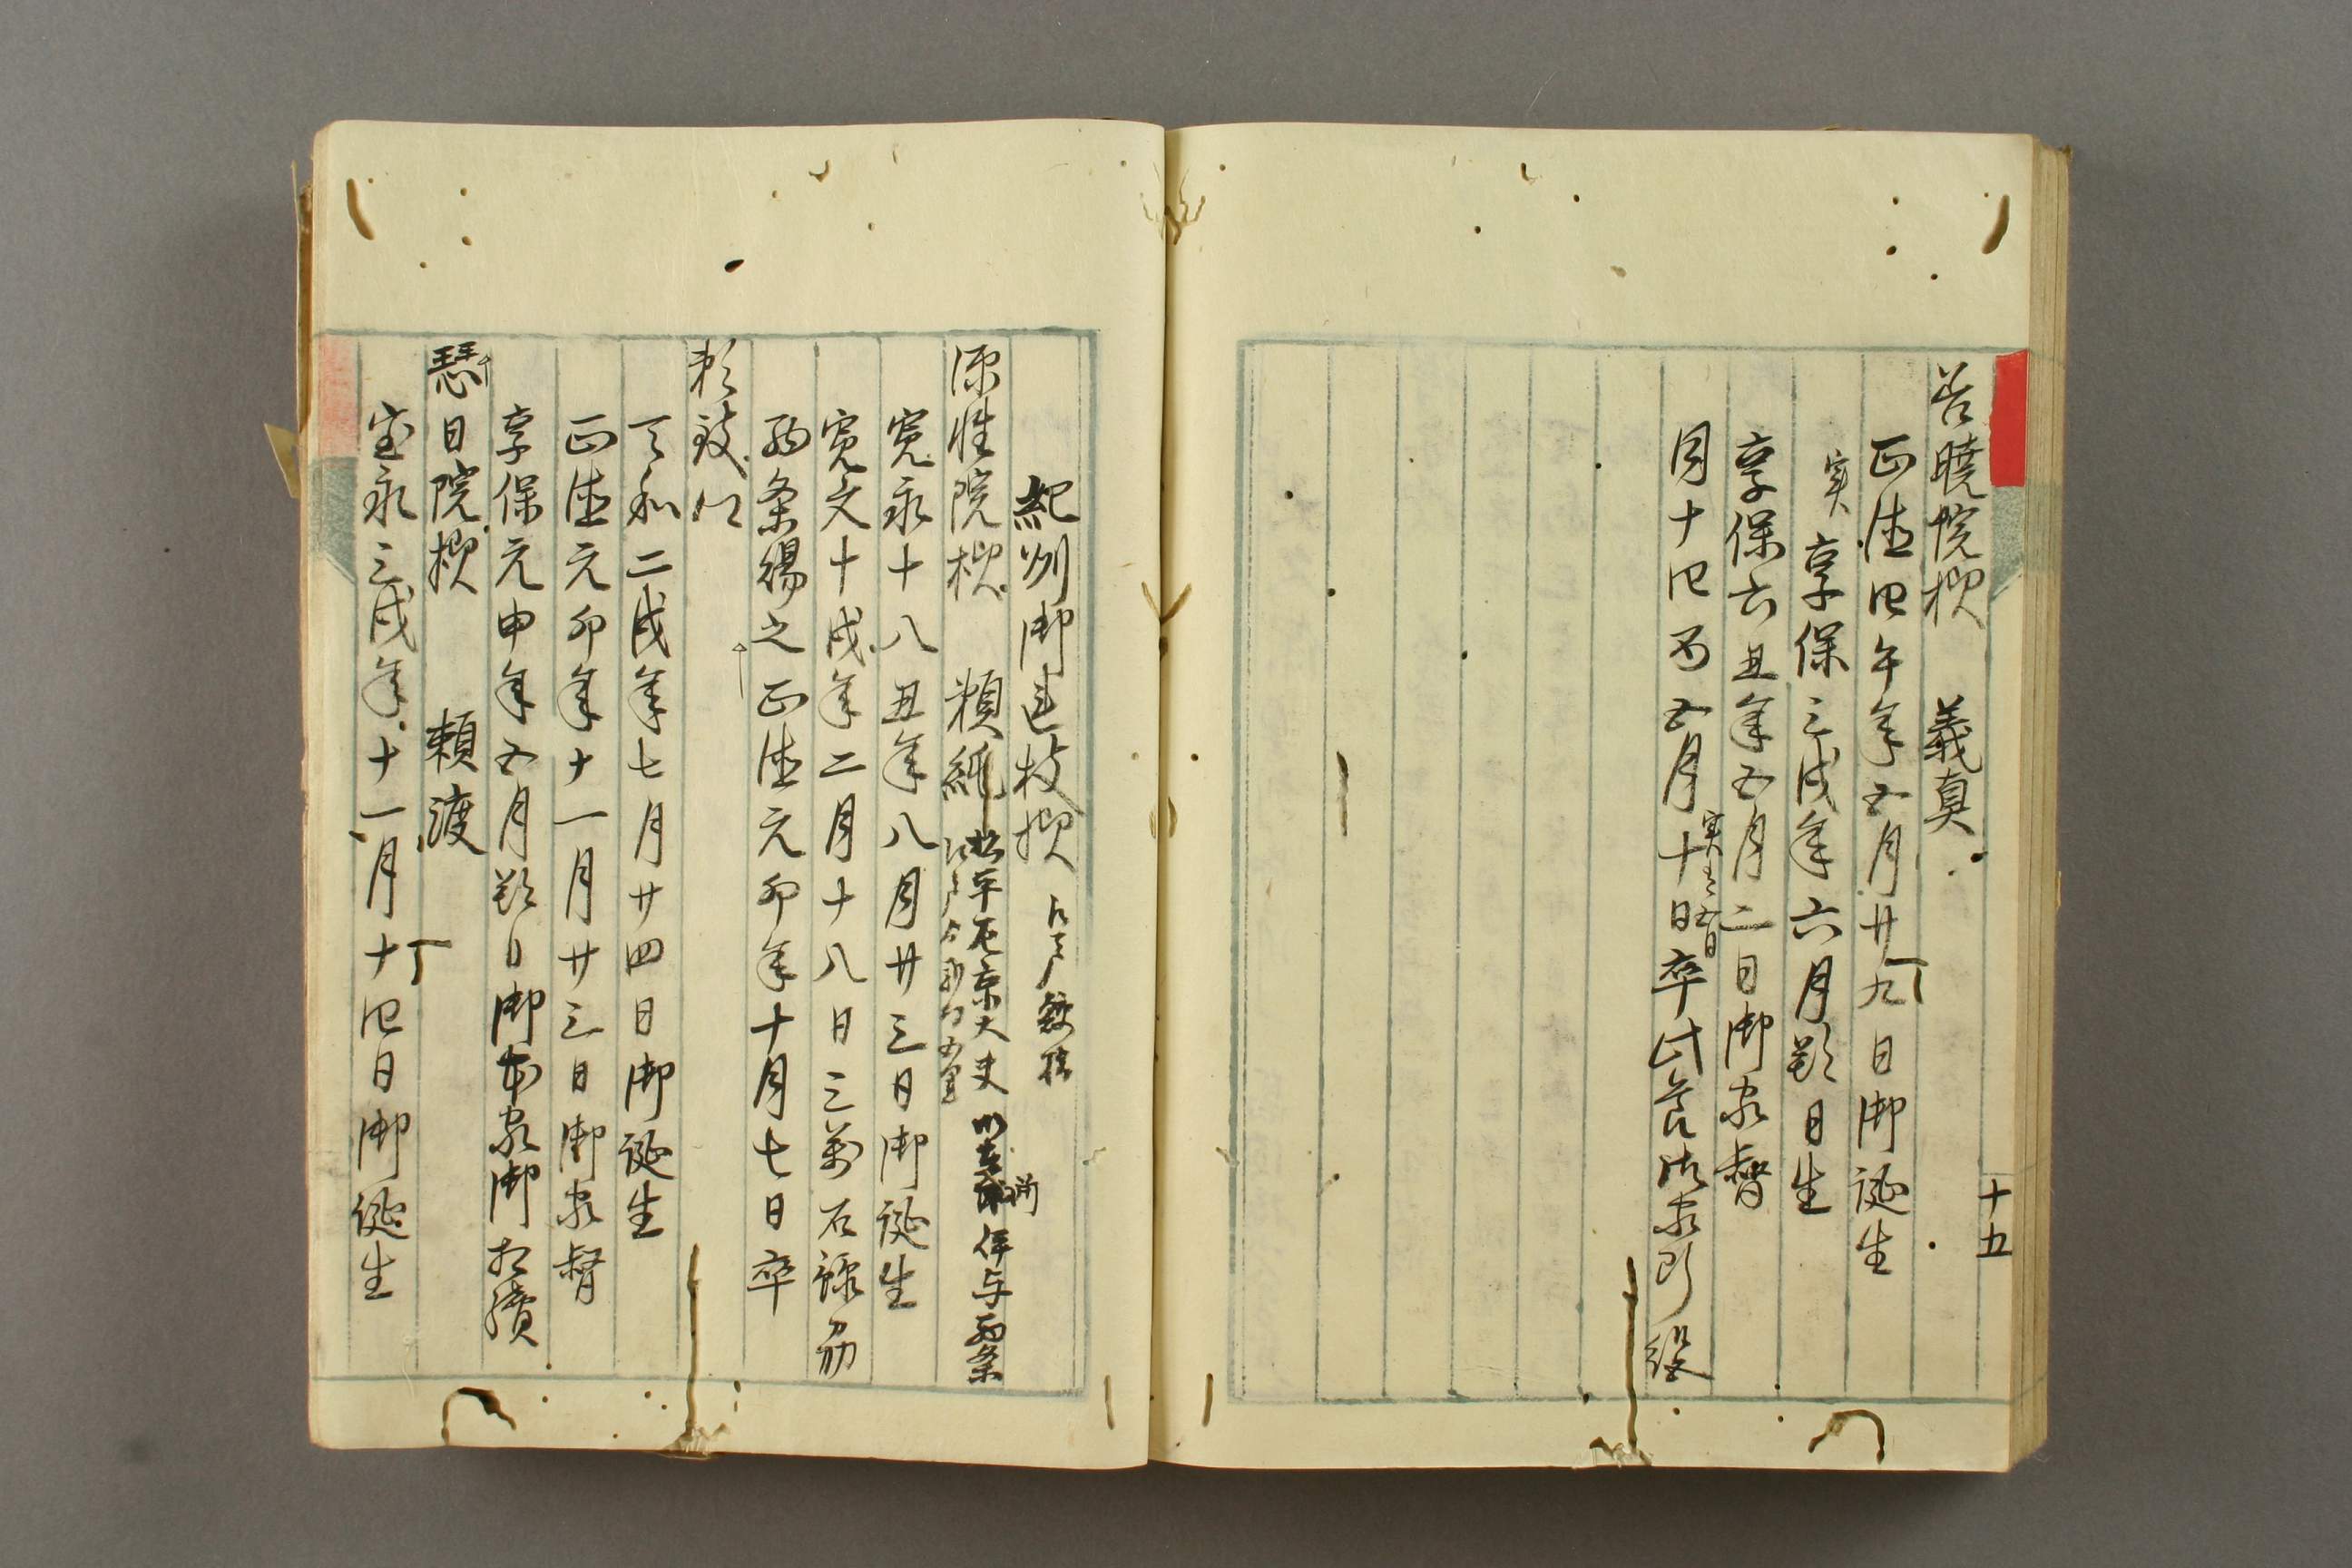 十五
苔暁院様 義真
正徳四午年五月廿九日御誕生
実享保三戌年六月朔日生
享保六丑年五月二日御家督
同十四酉五月十日卒此節御家断絶
実ハ五日
紀州御連枝様 江戸
源性院様 頼純 松平左京大夫 在所伊与西条
寛永十八丑年八月廿三日御誕生
寛文十戌年二月十八日三万石禄分
西条得之正徳元卯年十月七日卒
頼致公
天和二戌年七月廿四日御誕生
正徳元卯年十一月廿三日御家督
享保元申年五月朔日御本家御相続
恵日院様 頼渡
宝永三戌年十一月十四日御誕生